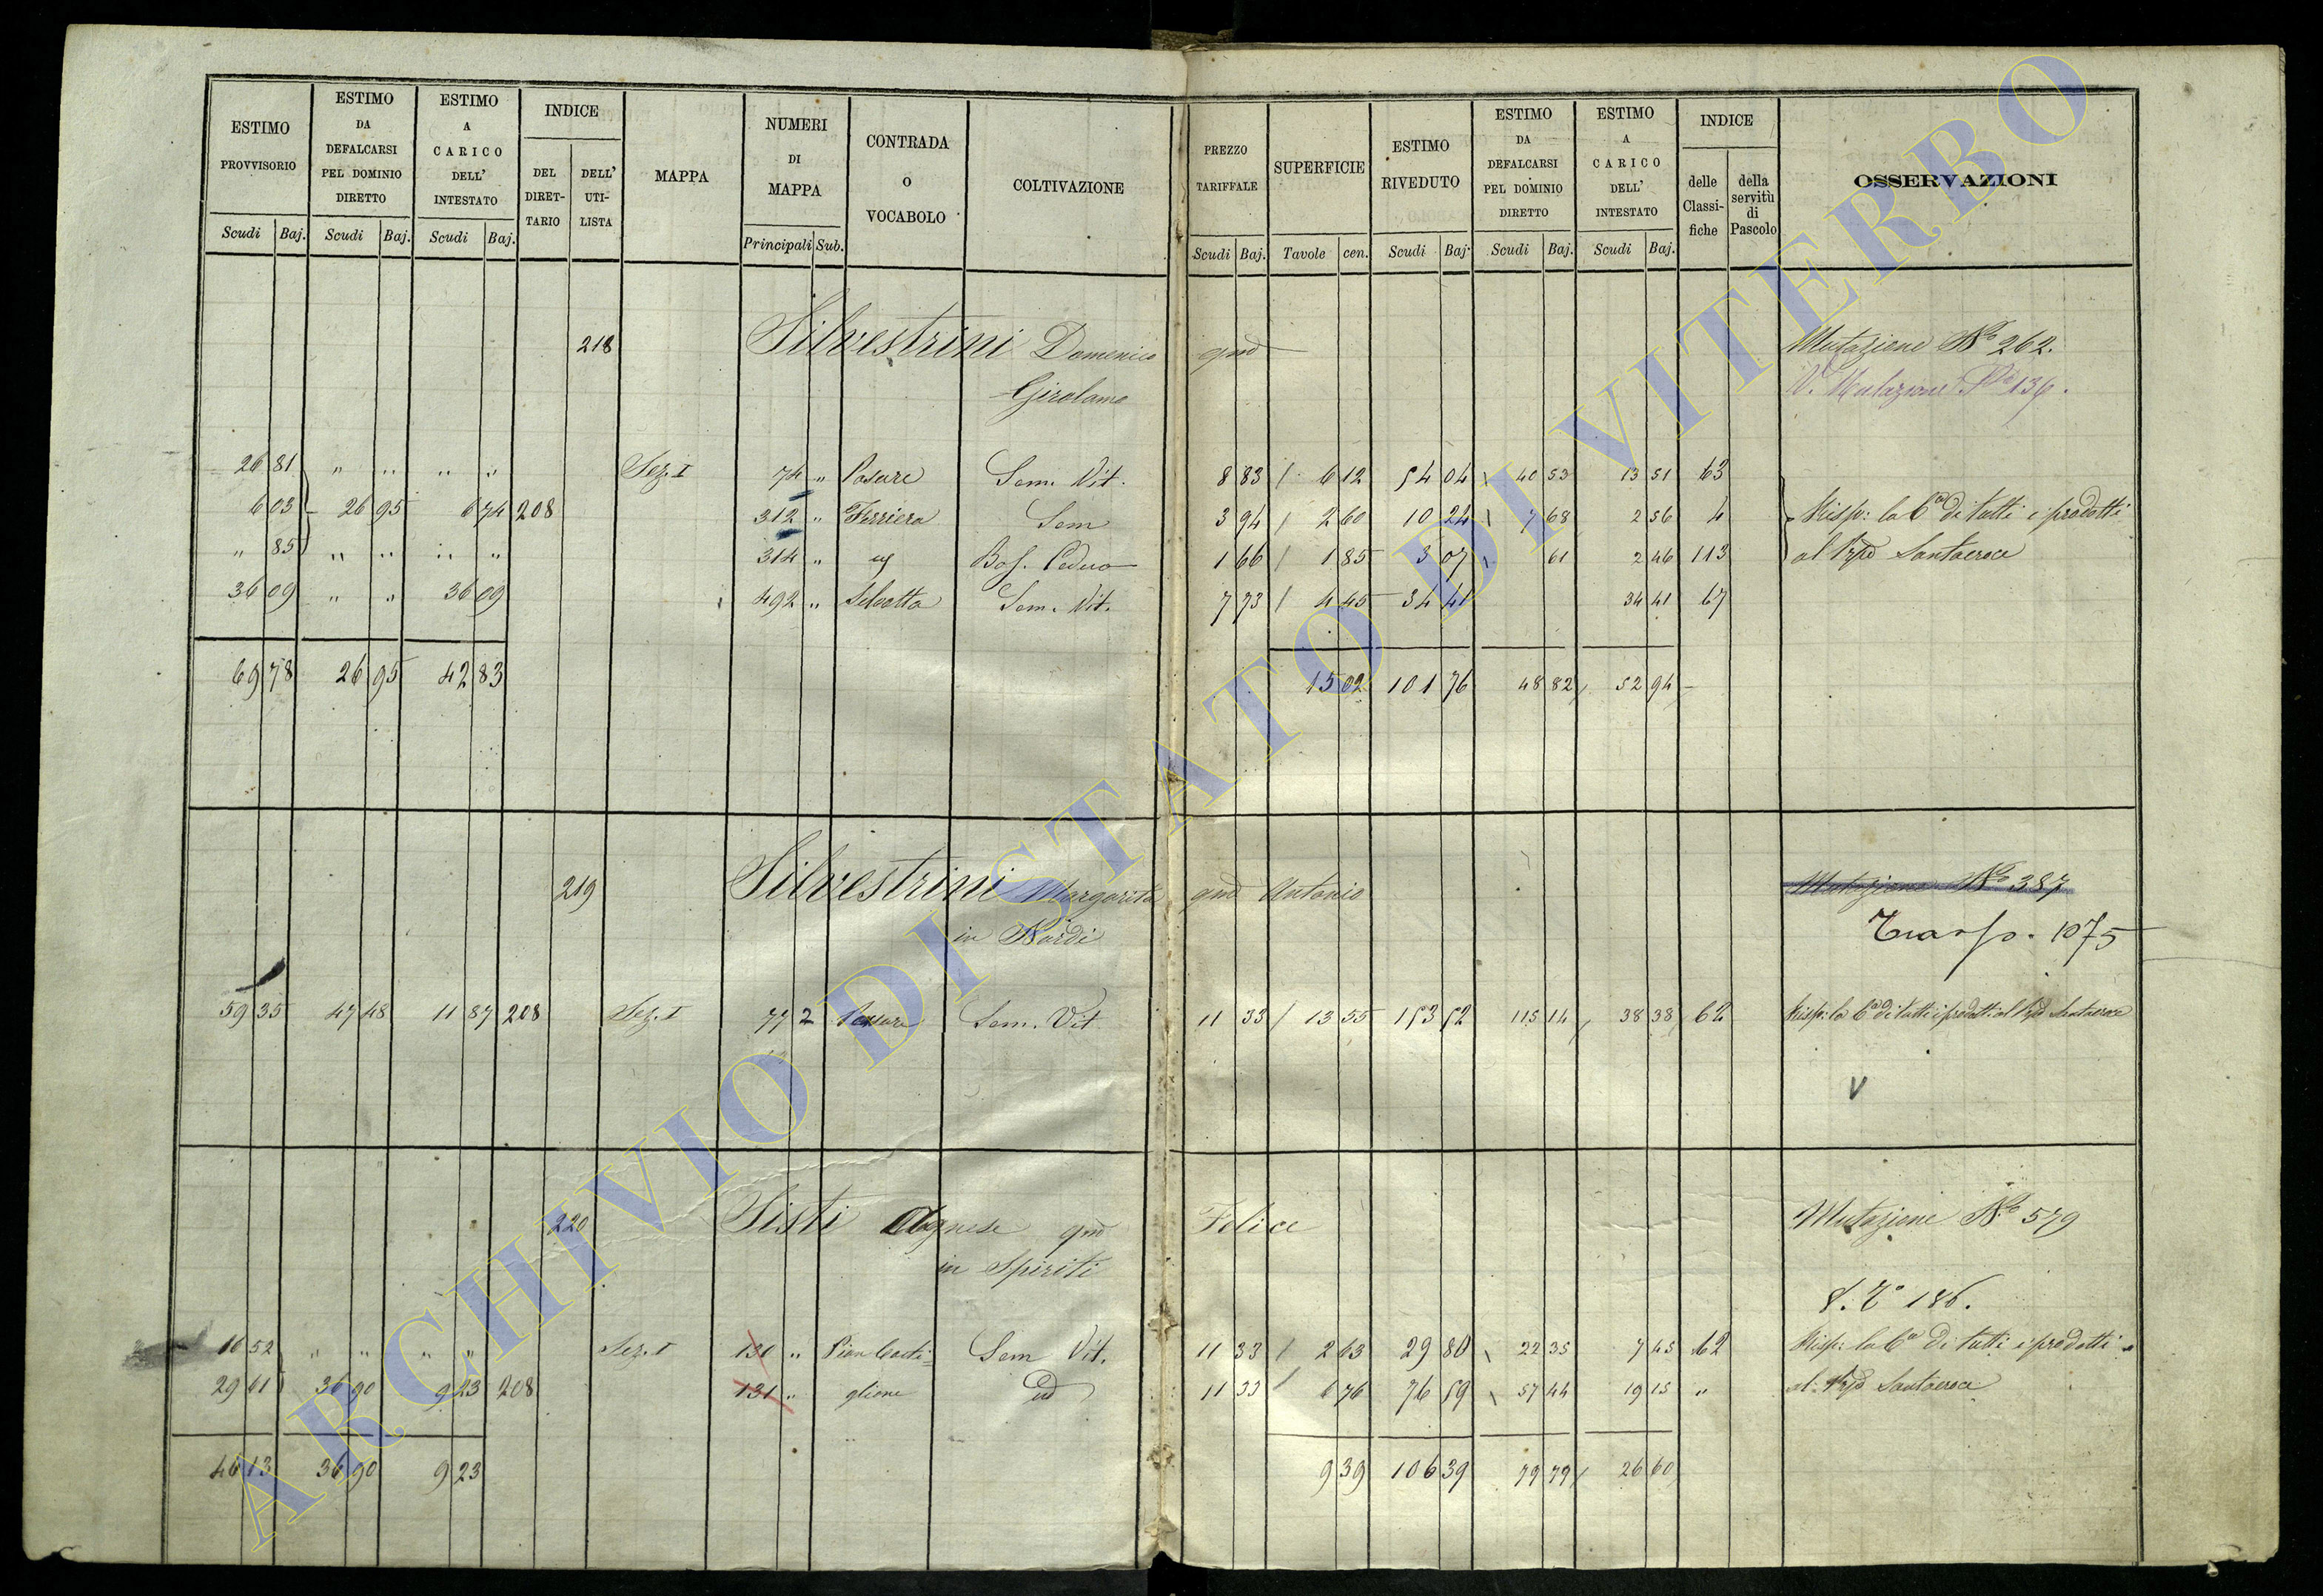 ESTIMO PROVVISORIO | ESTIMO DA DEFALCARSI PEL DOMINIO DIRETTO | ESTIMO A CARICO DELL' INTESTATO | INDICE | MAPPA | NUMERI DI MAPPA | CONTRADA O VOCABOLO | COLTIVAZIONE | PREZZO TARIFFALE | SUPERFICIE | ESTIMO RIVEDUTO | ESTIMO DA DEFALCARSI PEL DOMINIO DIRETTO | ESTIMO A CARICO DELL' INTESTATO | INDICE | OSSERVAZIONI
DEL DIRET-TARIO | DELL' UTI-LISTA | delle Classi-fiche | della servitù di Pascolo
Scudi | Baj. | Scudi | Baj. | Scudi | Baj. | Principali | Sub. | Scudi | Baj. | Tavole | cen. | Scudi | Baj. | Scudi | Baj. | Scudi | Baj.
218 Silvestrini Domenico qm Mutazione No 262.
Girolamo V. Mutazione No 136.
26 81 " " " " Sez. I 74 " Posare Sem. Vit. 8 83 6 12 54 04 40 53 13 51 63
6 03 26 95 6 74 208 312 " Ferriera Sem 3 94 2 60 10 24 7 68 2 56 4 Risp: la 6a di tutti i prodotti
" 85 " " " " 314 " Bos. Ceduo 1 66 1 85 3 07 61 2 46 113 al Santacroce
36 09 " " 36 09 492 " Selvotta Sem. Vit. 7 73 4 45 34 41 34 41 67
69 78 26 95 42 83 15 02 101 76 48 82 52 94
219 Silvestrini Margarita qm Antonio Mutazione No 387
in Nardi Trasp. 1075
59 35 47 48 11 87 208 Sez. I 77 2 Sem. Vit 11 33 13 55 153 52 115 14 38 38 62 Risp: la 6a di tutti i prodotti al Santacroce
V
220 Sisti Agnese qm Felice Mutazione No 579
in Spiriti
186.
16 52 " " " " Sez. I 130 " Pian Casti= Sem Vit. 11 33 2 63 29 80 22 35 7 45 62 Risp: la 6a di tutti i prodotti
29 61 36 90 9 23 208 131 " glione id 11 33 6 76 76 59 57 44 19 15 " al Santacroce
46 13 36 90 9 23 9 39 106 39 79 79 26 60
ARCHIVIO DI STATO DI VITERBO